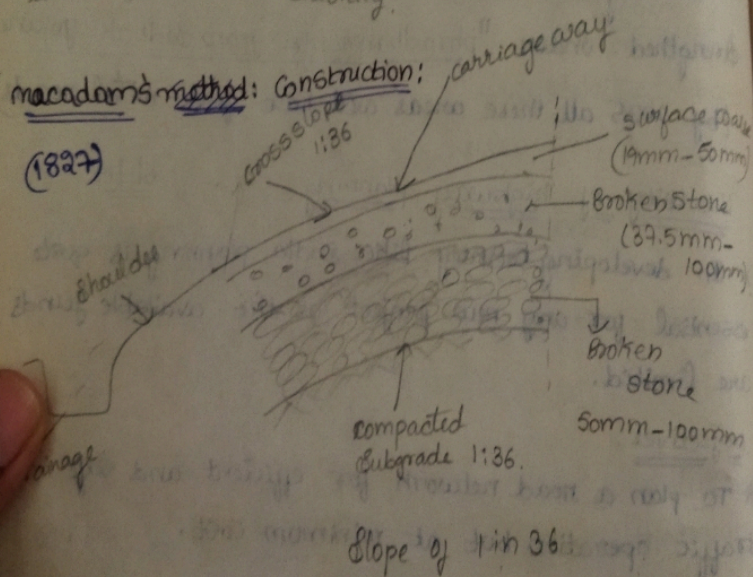 macadam's method: Construction:
(1827)
carriage way
Cross slope
1:36
(19mm-50mm)
Broken Stone
(37.5mm-
100mm)
Shoulder
Broken
Stone
50mm-100mm
Compacted
Subgrade 1:36.
Slope of 1 in 36